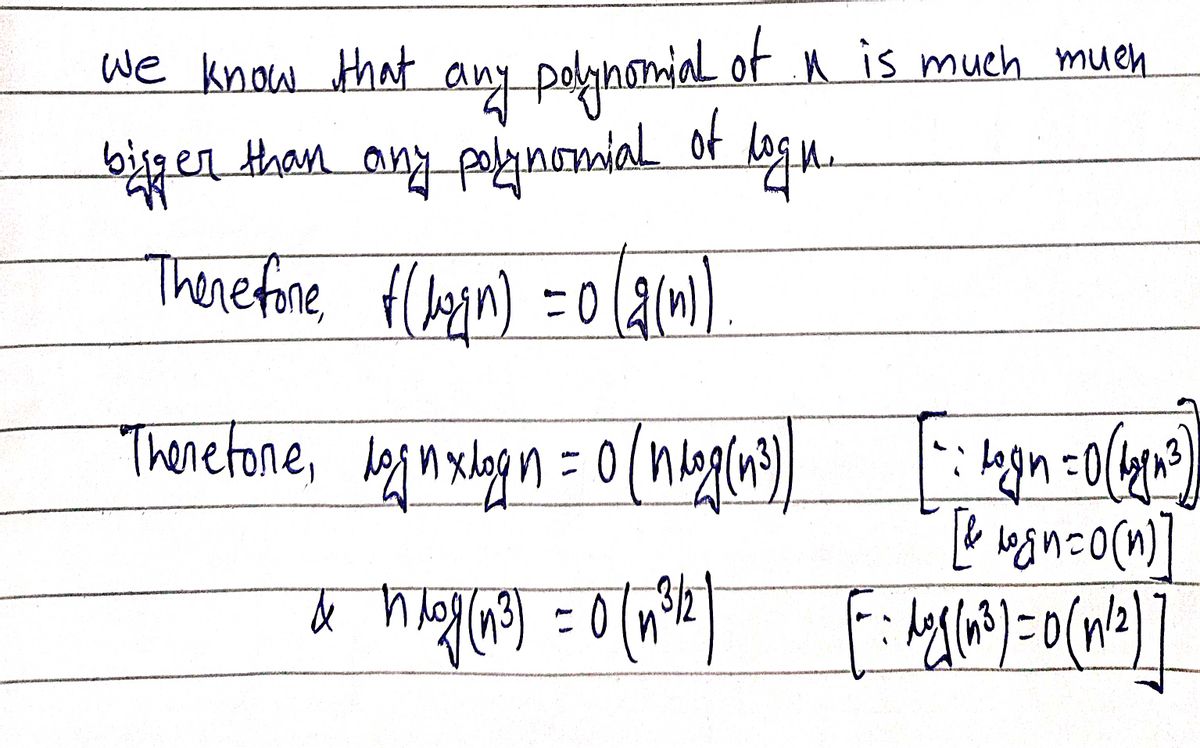 We know that any polynomial of n is much much
bigger than any polynomial of log n.
Therefore, f(log n) = O(g(n)).
Therefore, log n x log n = O(n log(n³)) [∵ log n = O(log n³)]
[& log n = O(n)]
& n log(n³) = O(n^3/2) [∵ log(n³) = O(n^1/2)]